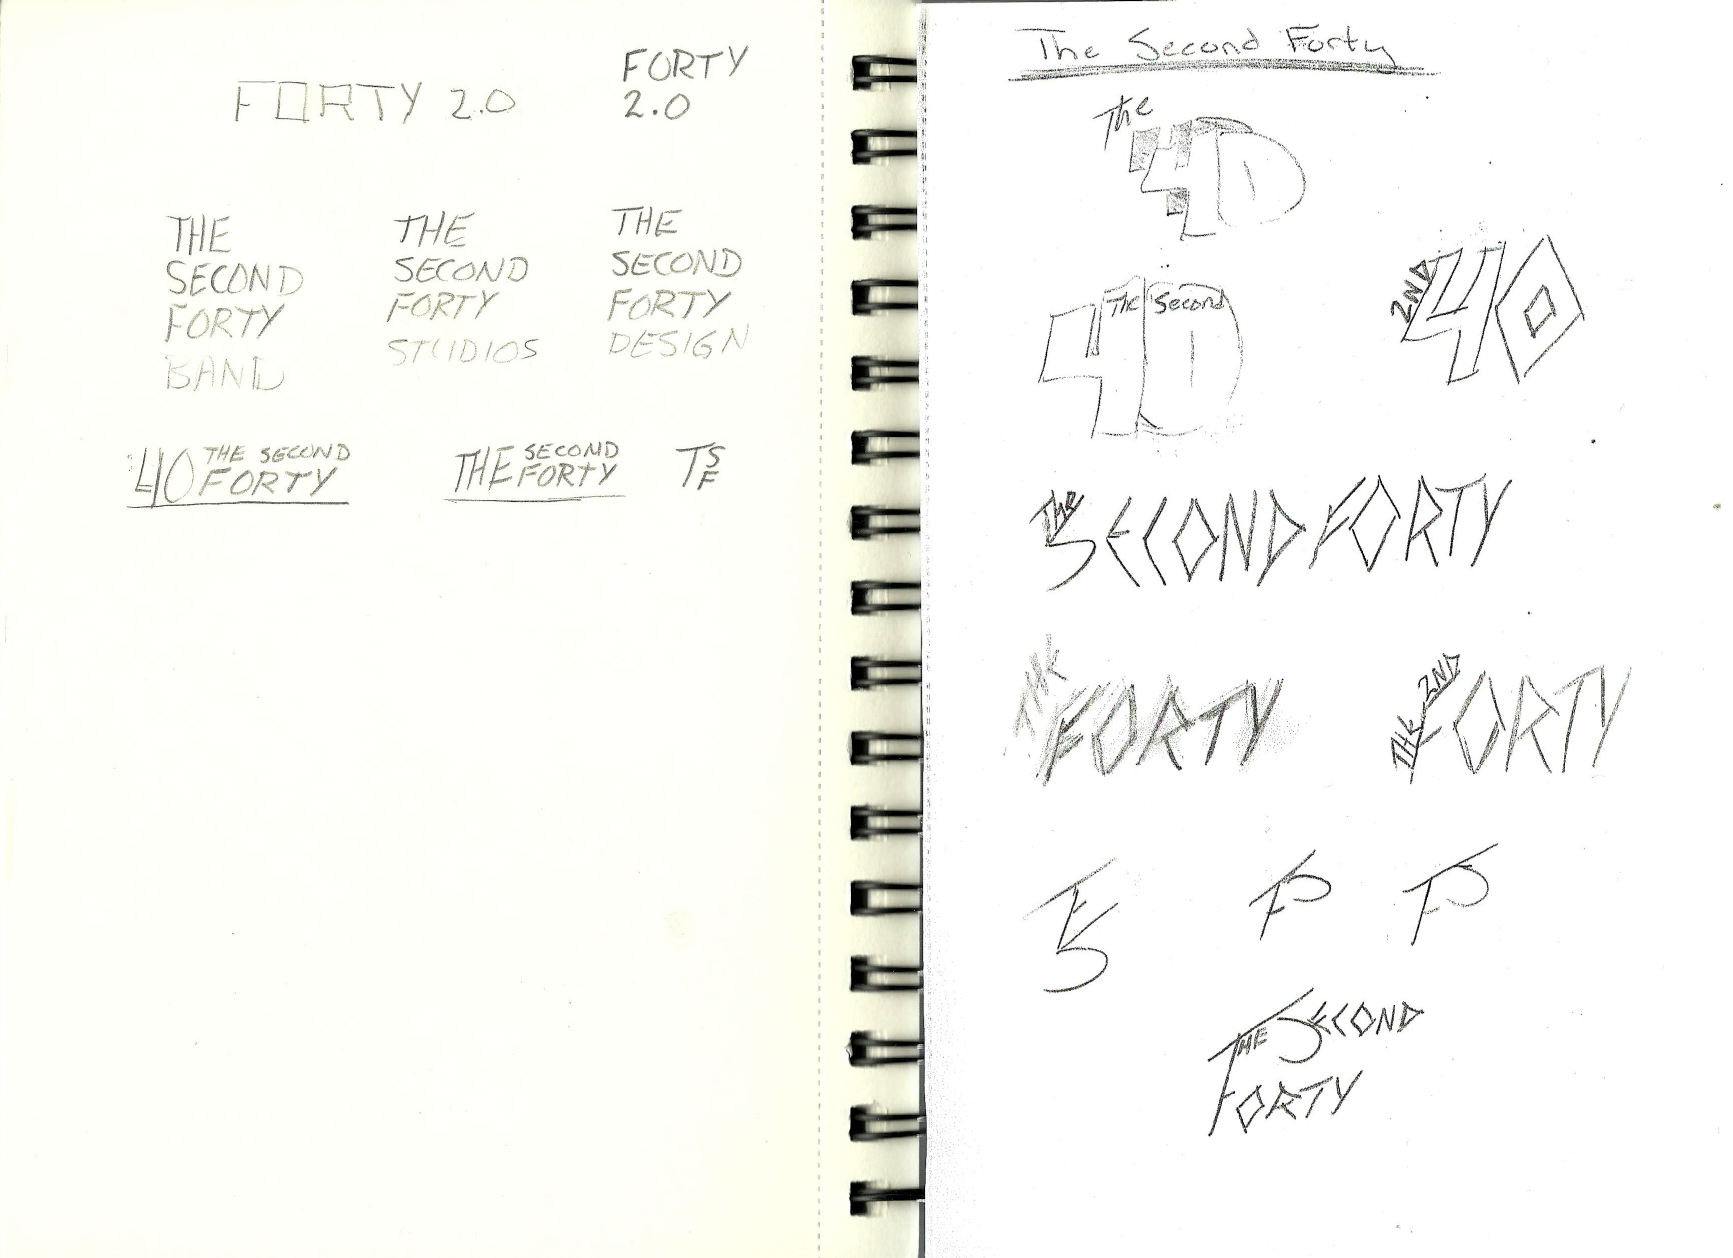 FORTY 2.0
FORTY
2.0
THE
SECOND
FORTY
BAND
THE
SECOND
FORTY
STUDIOS
THE
SECOND
FORTY
DESIGN
40 THE SECOND
FORTY
THE SECOND
FORTY
TSF
The Second Forty
The
40
The Second
40
2ND
40
THE
SECOND FORTY
THE
FORTY
THE 2ND
FORTY
TFS
TFS
TFS
THE SECOND
FORTY